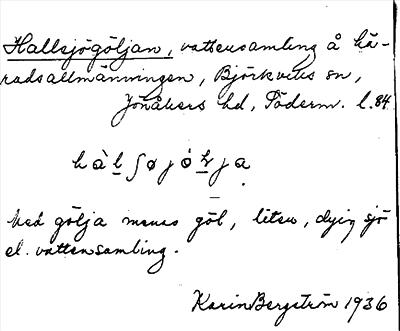 Hallsjögöljan, vattensamling å hä-
radsallmänningen, Björkviks sn,
Jönåkers hd, Söderm. l. 84.
Med gölja menas göl, liten, dyig sjö
el. vattensamling.
Karin Bergström 1936